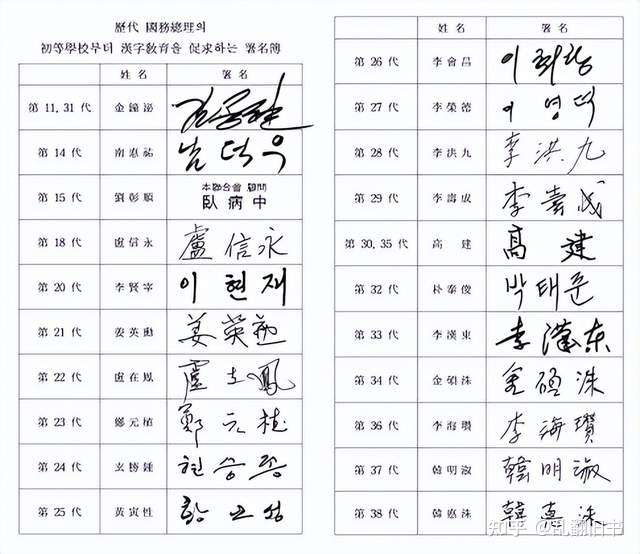 歷代 國務總理의
初等學校부터 漢字敎育을 促求하는 署名簿
姓 名 署 名
第 11, 31 代 金鐘泌 김종필
第 14 代 南悳祐 남덕우
第 15 代 劉彰順 本聯合會 顧問
臥病中
第 18 代 盧信永 盧信永
第 20 代 李賢宰 이현재
第 21 代 姜英勳 姜英勳
第 22 代 盧在鳳 盧在鳳
第 23 代 鄭元植 鄭元植
第 24 代 玄勝鍾 현승종
第 25 代 黃寅性 황인성
姓 名 署 名
第 26 代 李會昌 이회창
第 27 代 李榮德 이영덕
第 28 代 李洪九 李洪九
第 29 代 李壽成 李壽成
第 30, 35 代 高 建 高建
第 32 代 朴泰俊 박태준
第 33 代 李漢東 李漢东
第 34 代 金碩洙 金碩洙
第 36 代 李海瓚 李海瓚
第 37 代 韓明淑 韓明淑
第 38 代 韓悳洙 韓悳洙
知乎 @乱翻旧书